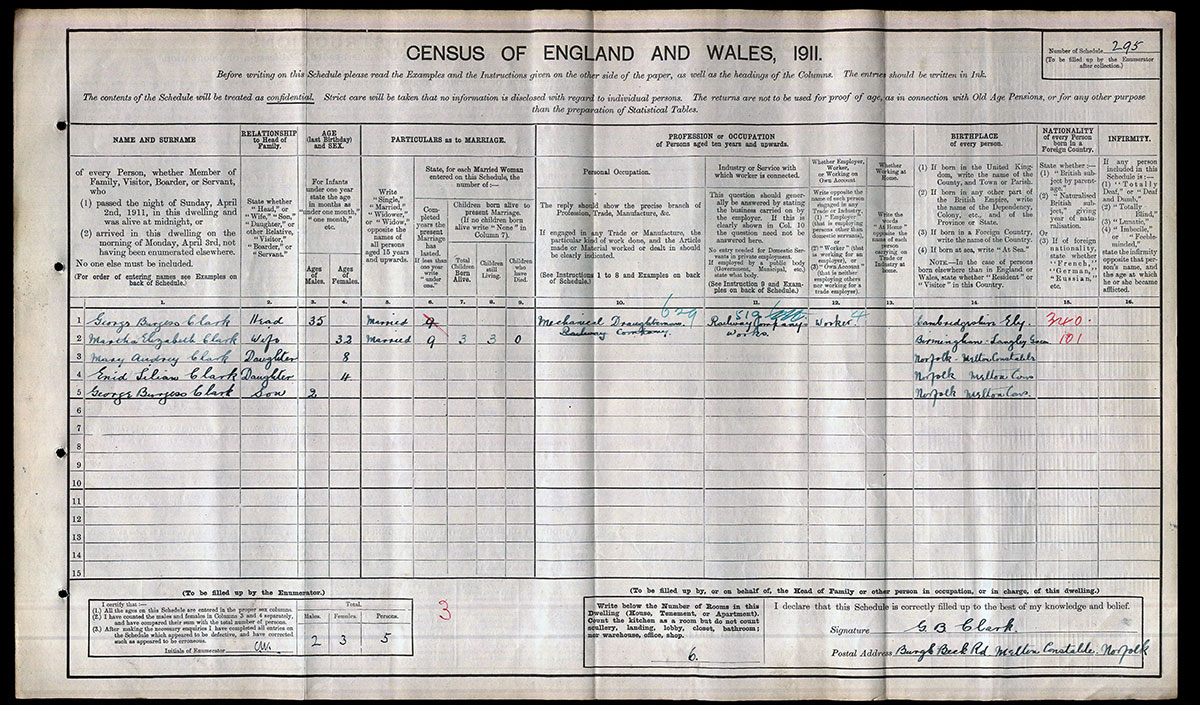 CENSUS OF ENGLAND AND WALES, 1911.
Number of Schedule 295
(To be filled up by the Enumerator
after collection.)
Before writing on this Schedule please read the Examples and the Instructions given on the other side of the paper, as well as the headings of the Columns. The entries should be written in Ink.
The contents of the Schedule will be treated as confidential. Strict care will be taken that no information is disclosed with regard to individual persons. The returns are not to be used for proof of age, as in connection with Old Age Pensions, or for any other purpose
than the preparation of Statistical Tables.
NAME AND SURNAME
of every Person, whether Member of
Family, Visitor, Boarder, or Servant,
who
(1) passed the night of Sunday, April
2nd, 1911, in this dwelling and
was alive at midnight, or
(2) arrived in this dwelling on the
morning of Monday, April 3rd, not
having been enumerated elsewhere.
No one else must be included.
(For order of entering names see Examples on
back of Schedule.)
1.
RELATIONSHIP
to Head of
Family.
State whether
"Head," or
"Wife," "Son,"
"Daughter," or
other Relative,
"Visitor,"
"Boarder," or
"Servant."
2.
AGE
(last Birthday)
and SEX.
For Infants
under one year
state the age
in months as
"under one month,"
"one month,"
etc.
Ages
of
Males.
3.
Ages
of
Females.
4.
PARTICULARS as to MARRIAGE.
Write
"Single,"
"Married,"
"Widower,"
or "Widow,"
opposite the
names of
all persons
aged 15 years
and upwards.
5.
State, for each Married Woman
entered on this Schedule, the
number of:—
Completed
years the
present
Marriage
has
lasted.
If less than
one year
write
"under one."
6.
Children born alive to
present Marriage.
(If no children born
alive write "None" in
Column 7).
Total
Children
Born
Alive.
7.
Children
still
Living.
8.
Children
who
have
Died.
9.
PROFESSION or OCCUPATION
of Persons aged ten years and upwards.
Personal Occupation.
The reply should show the precise branch of
Profession, Trade, Manufacture, &c.
If engaged in any Trade or Manufacture, the
particular kind of work done, and the Article
made or Material worked or dealt in should
be clearly indicated.
(See Instructions 1 to 8 and Examples on back
of Schedule.)
10.
Industry or Service with
which worker is connected.
This question should generally
be answered by stating
the business carried on by
the employer. If this is
clearly shown in Col. 10
the question need not be
answered here.
No entry needed for Domestic Servants
in private employment.
If employed by a public body
(Government, Municipal, etc.)
state what body.
(See Instruction 9 and Examples
on back of Schedule.)
11.
Whether Employer,
Worker,
or Working on
Own Account.
Write opposite the
name of each person
engaged in any
Trade or Industry,
(1) "Employer"
(that is employing
persons other than
domestic servants),
or
(2) "Worker" (that
is working for an
employer), or
(3) "Own Account"
(that is neither
employing others
nor working for a
trade employer).
12.
Whether
Working at
Home.
Write the
words
"At Home"
opposite the
name of each
person
carrying on
Trade or
Industry at
home.
13.
BIRTHPLACE
of every person.
(1) If born in the United Kingdom,
write the name of the
County, and Town or Parish.
(2) If born in any other part of
the British Empire, write
the name of the Dependency,
Colony, etc., and of the
Province or State.
(3) If born in a Foreign Country,
write the name of the Country.
(4) If born at sea, write "At Sea."
NOTE.—In the case of persons
born elsewhere than in England or
Wales, state whether "Resident" or
"Visitor" in this Country.
14.
NATIONALITY
of every Person
born in a
Foreign Country.
State whether :—
(1) "British
subject by parentage,"
(2) "Naturalised
British subject,"
giving
year of naturalisation.
Or
(3) If of foreign
nationality,
state whether
"French,"
"German,"
"Russian,"
etc.
15.
INFIRMITY.
If any person
included in this
Schedule is :—
(1) "Totally
Deaf," or "Deaf
and Dumb,"
(2) "Totally
Blind,"
(3) "Lunatic,"
(4) "Imbecile,"
or "Feeble-minded,"
state the infirmity
opposite that person's
name, and
the age at which
he or she became
afflicted.
16.
629 519 4
1 George Burgess Clark Head 35 Married 9 Mechanical Draughtsman Railway Company Worker Cambridgeshire Ely. 340
Railway Company Works.
2 Martha Elizabeth Clark Wife 32 Married 9 3 3 0 Birmingham Langley Green 101
3 Mary Audrey Clark Daughter 8 Norfolk - Melton Constable
4 Enid Lilian Clark Daughter 4 Norfolk Melton Cons
5 George Burgess Clark Son 2 Norfolk Melton Cons.
6
7
8
9
10
11
12
13
14
15
(To be filled up by the Enumerator.)
I certify that :—
(1.) All the ages on this Schedule are entered in the proper sex columns.
(2.) I have counted the males and females in Columns 3 and 4 separately,
and have compared their sum with the total number of persons.
(3.) After making the necessary enquiries I have completed all entries on
the Schedule which appeared to be defective, and have corrected
such as appeared to be erroneous.
Initials of Enumerator
Total.
Males. Females. Persons.
2 3 5
3
(To be filled up by, or on behalf of, the Head of Family or other person in occupation, or in charge, of this dwelling.)
Write below the Number of Rooms in this
Dwelling (House, Tenement, or Apartment).
Count the kitchen as a room but do not count
scullery, landing, lobby, closet, bathroom;
nor warehouse, office, shop.
6.
I declare that this Schedule is correctly filled up to the best of my knowledge and belief.
Signature G. B. Clark.
Postal Address Burgh Beck Rd Melton Constable. Norfolk